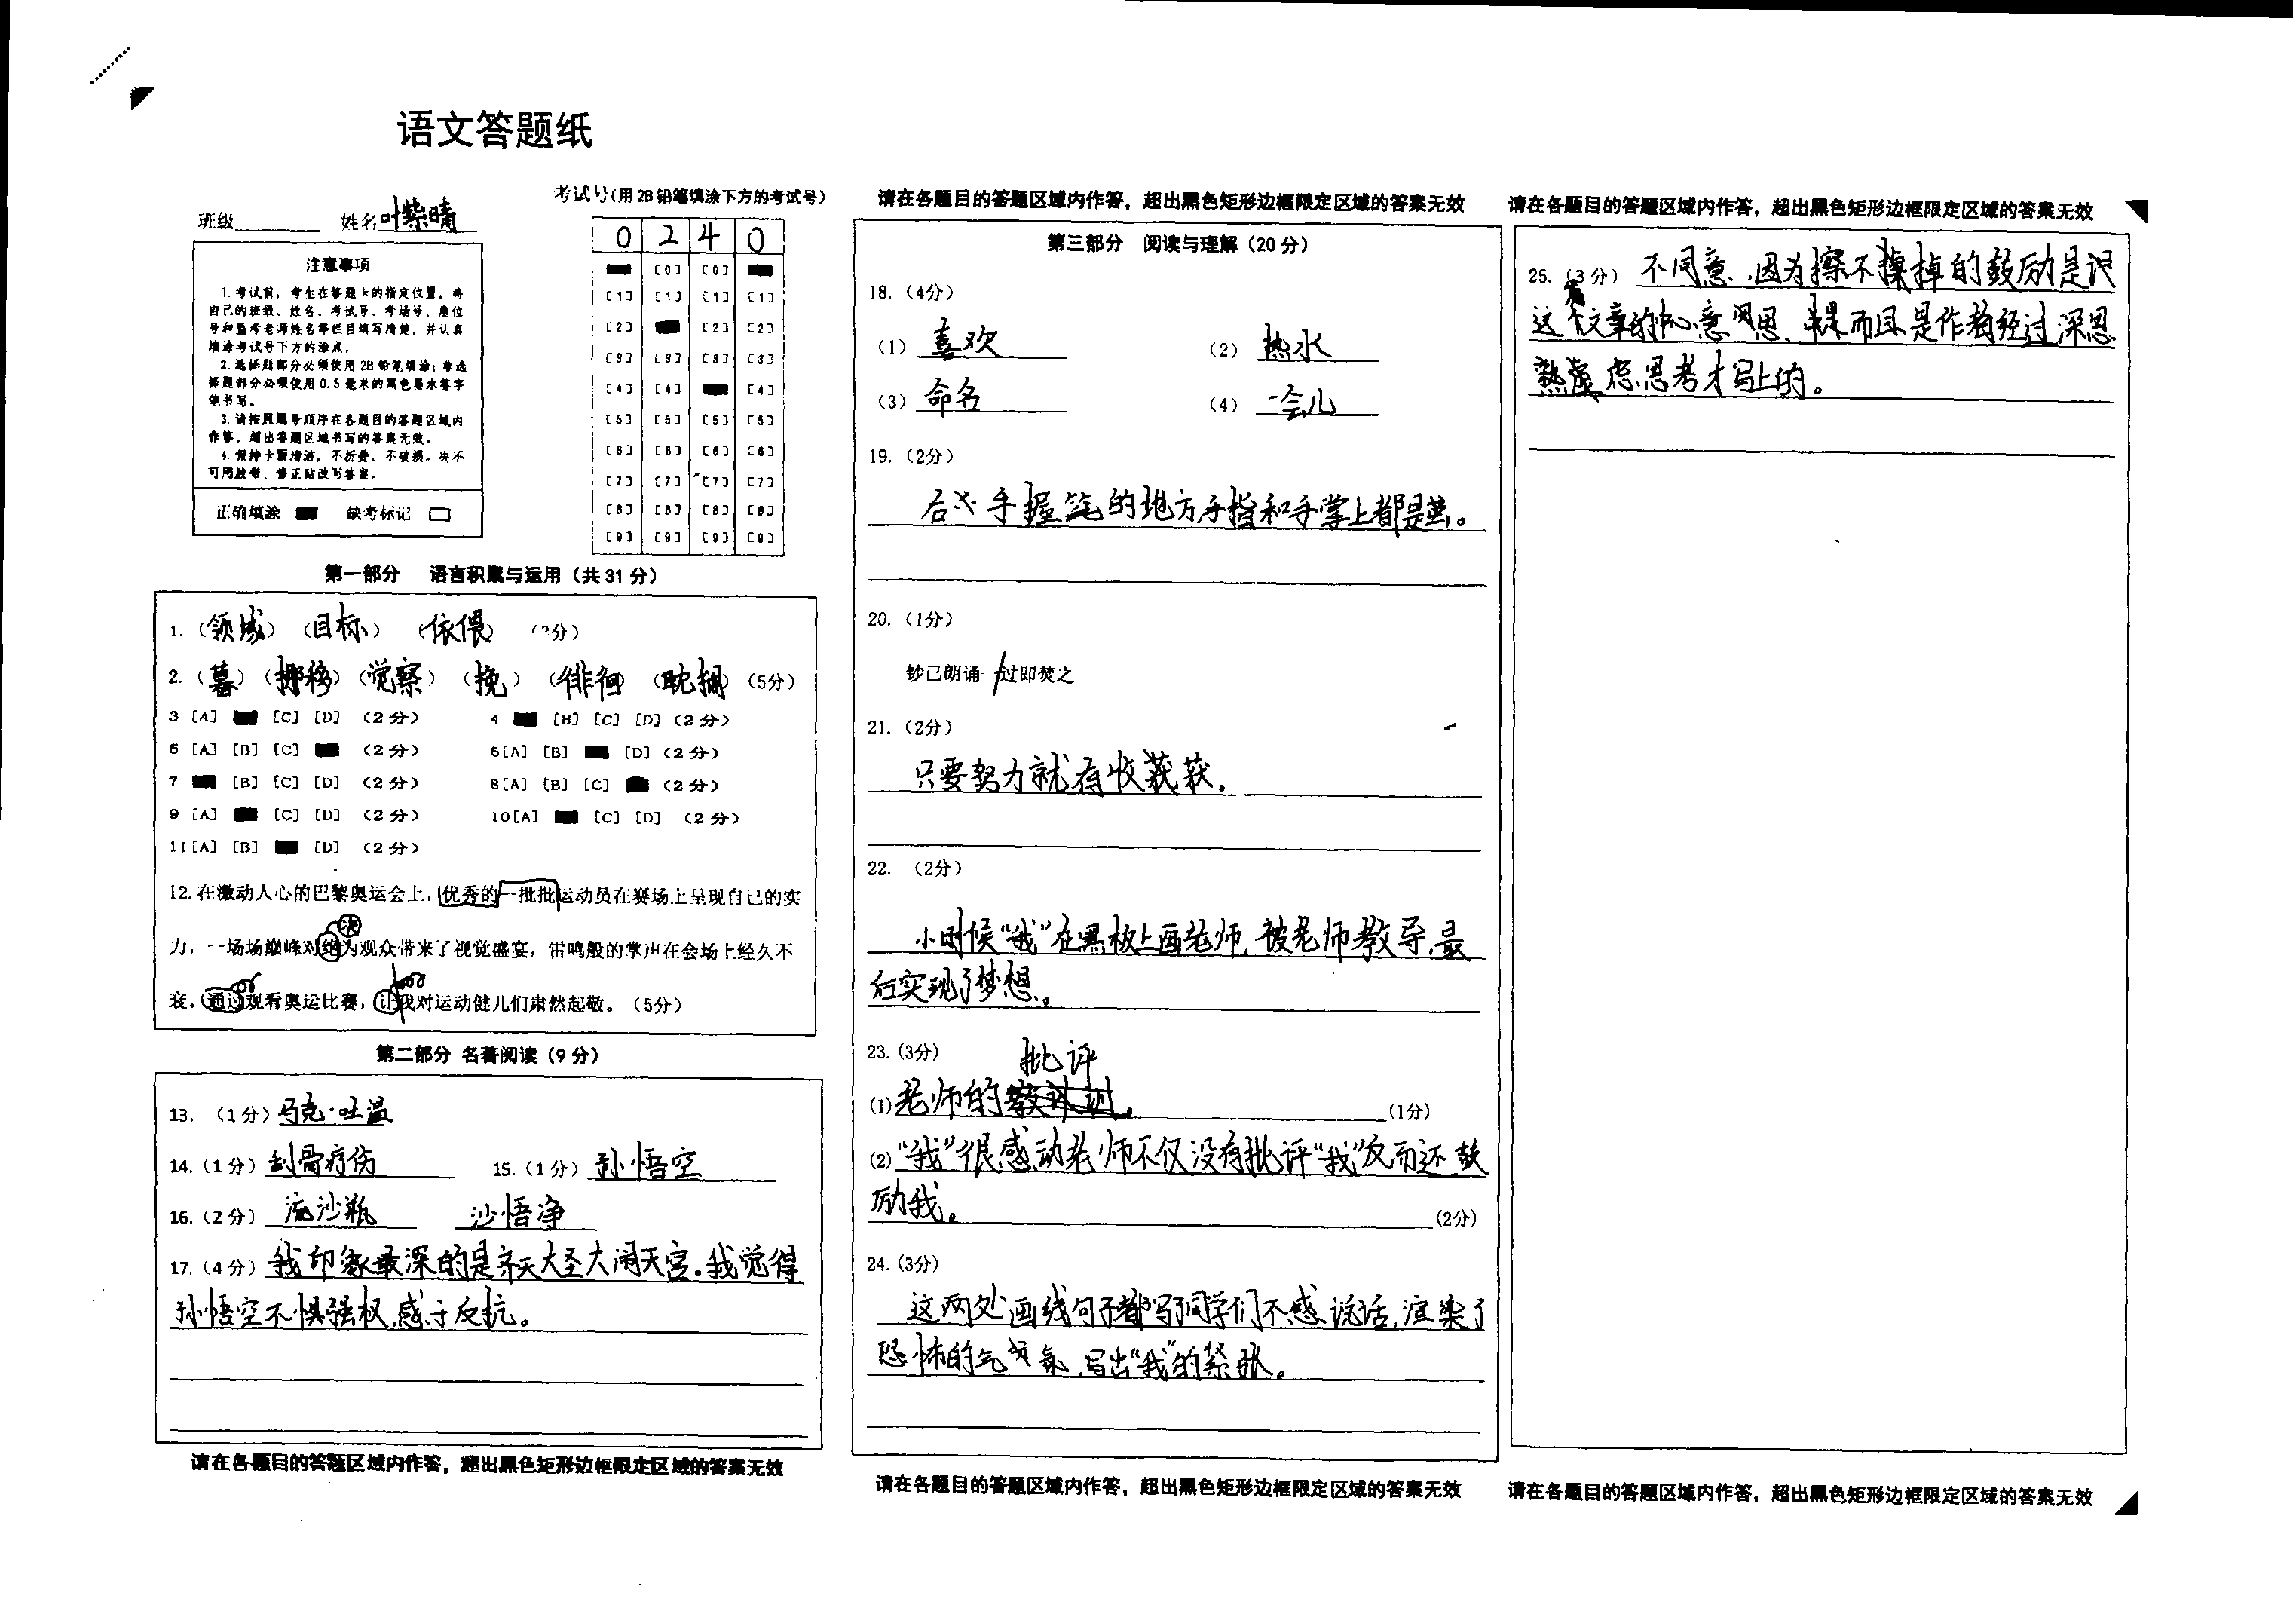 语文答题纸
班级 姓名 叶紫晴
考试号(用2B铅笔填涂下方的考试号)
0 2 4 0
注意事项
1.考试前，考生在答题卡的指定位置，将
自己的班级、姓名、考试号、考场号、座位
号和监考老师姓名等栏目填写清楚，并认真
填涂考试号下方的涂点。
2.选择题部分必须使用2B铅笔填涂；非选
择题部分必须使用0.5毫米的黑色墨水签字
笔书写。
3.请按照题号顺序在各题目的答题区域内
作答，超出答题区域书写的答案无效。
4.保持卡面清洁，不折叠、不破损。决不
可用胶带、修正贴改写答案。
正确填涂 缺考标记
[0] [0]
[1] [1] [1] [1]
[2] [2] [2]
[3] [3] [3] [3]
[4] [4] [4]
[5] [5] [5] [5]
[6] [6] [6] [6]
[7] [7] [7] [7]
[8] [8] [8] [8]
[9] [9] [9] [9]
第一部分 语言积累与运用（共31分）
1.（领域）（目标）（依偎）（?分）
2.（暮）（挪移）（觉察）（挽）（徘徊）（耽搁）（5分）
3 [A] [C] [D] （2分） 4 [B] [C] [D]（2分）
5 [A] [B] [C] （2分） 6[A] [B] [D]（2分）
7 [B] [C] [D] （2分） 8[A] [B] [C] （2分）
9 [A] [C] [D] （2分） 10[A] [C] [D] （2分）
11[A] [B] [D] （2分）
12.在激动人心的巴黎奥运会上，优秀的一批批运动员在赛场上呈现自己的实
决
力，一场场巅峰对绝为观众带来了视觉盛宴，雷鸣般的掌声在会场上经久不
衰。通过观看奥运比赛，让我对运动健儿们肃然起敬。（5分）
第二部分 名著阅读（9分）
13.（1分）马克·吐温
14.（1分）刮骨疗伤 15.（1分）孙悟空
16.（2分）流沙瓶 沙悟净
17.（4分）我印象最深的是齐天大圣大闹天宫。我觉得
孙悟空不惧强权,感于反抗。
请在各题目的答题区域内作答，超出黑色矩形边框限定区域的答案无效
请在各题目的答题区域内作答，超出黑色矩形边框限定区域的答案无效
第三部分 阅读与理解（20分）
18.（4分）
（1）喜欢 （2）热水
（3）命名 （4）一会儿
19.（2分）
右 手握笔的地方手指和手掌上都是茧。
20.（1分）
钞已朗诵/过即焚之
21.（2分）
只要努力就有收获。
22.（2分）
小时候“我”在黑板上画老师,被老师教导,最
后实现了梦想。
23.（3分） 批评
(1)老师的 。（1分）
(2)“我”很感动老师不仅没有批评“我”反而还鼓
励我。（2分）
24.（3分）
这两处画线句子都写了同学们不感说话,渲染了
恐怖的气氛,写出“我”的紧张。
请在各题目的答题区域内作答，超出黑色矩形边框限定区域的答案无效
请在各题目的答题区域内作答，超出黑色矩形边框限定区域的答案无效
25.（3分）不同意,因为擦不掉的鼓励是
这 文章的中心意 思, 而且是作者经过深思
熟虑思考才写上的。
请在各题目的答题区域内作答，超出黑色矩形边框限定区域的答案无效